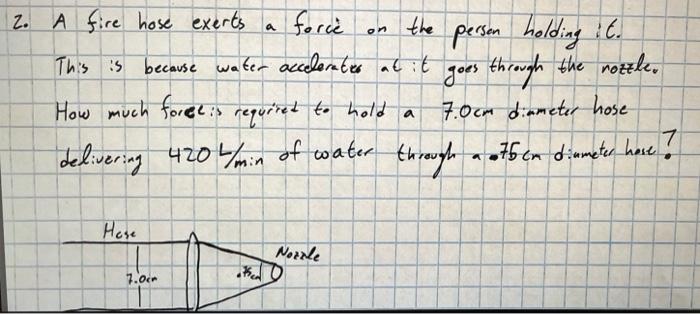 2. A fire hose exerts a force on the person holding it.
This is because water accelerates at it goes through the nozzle.
How much force is required to hold a 7.0cm diameter hose
delivering 420 L/min of water through a .75 cm diameter hose?
Hose
Nozzle
7.0cm
.75cm